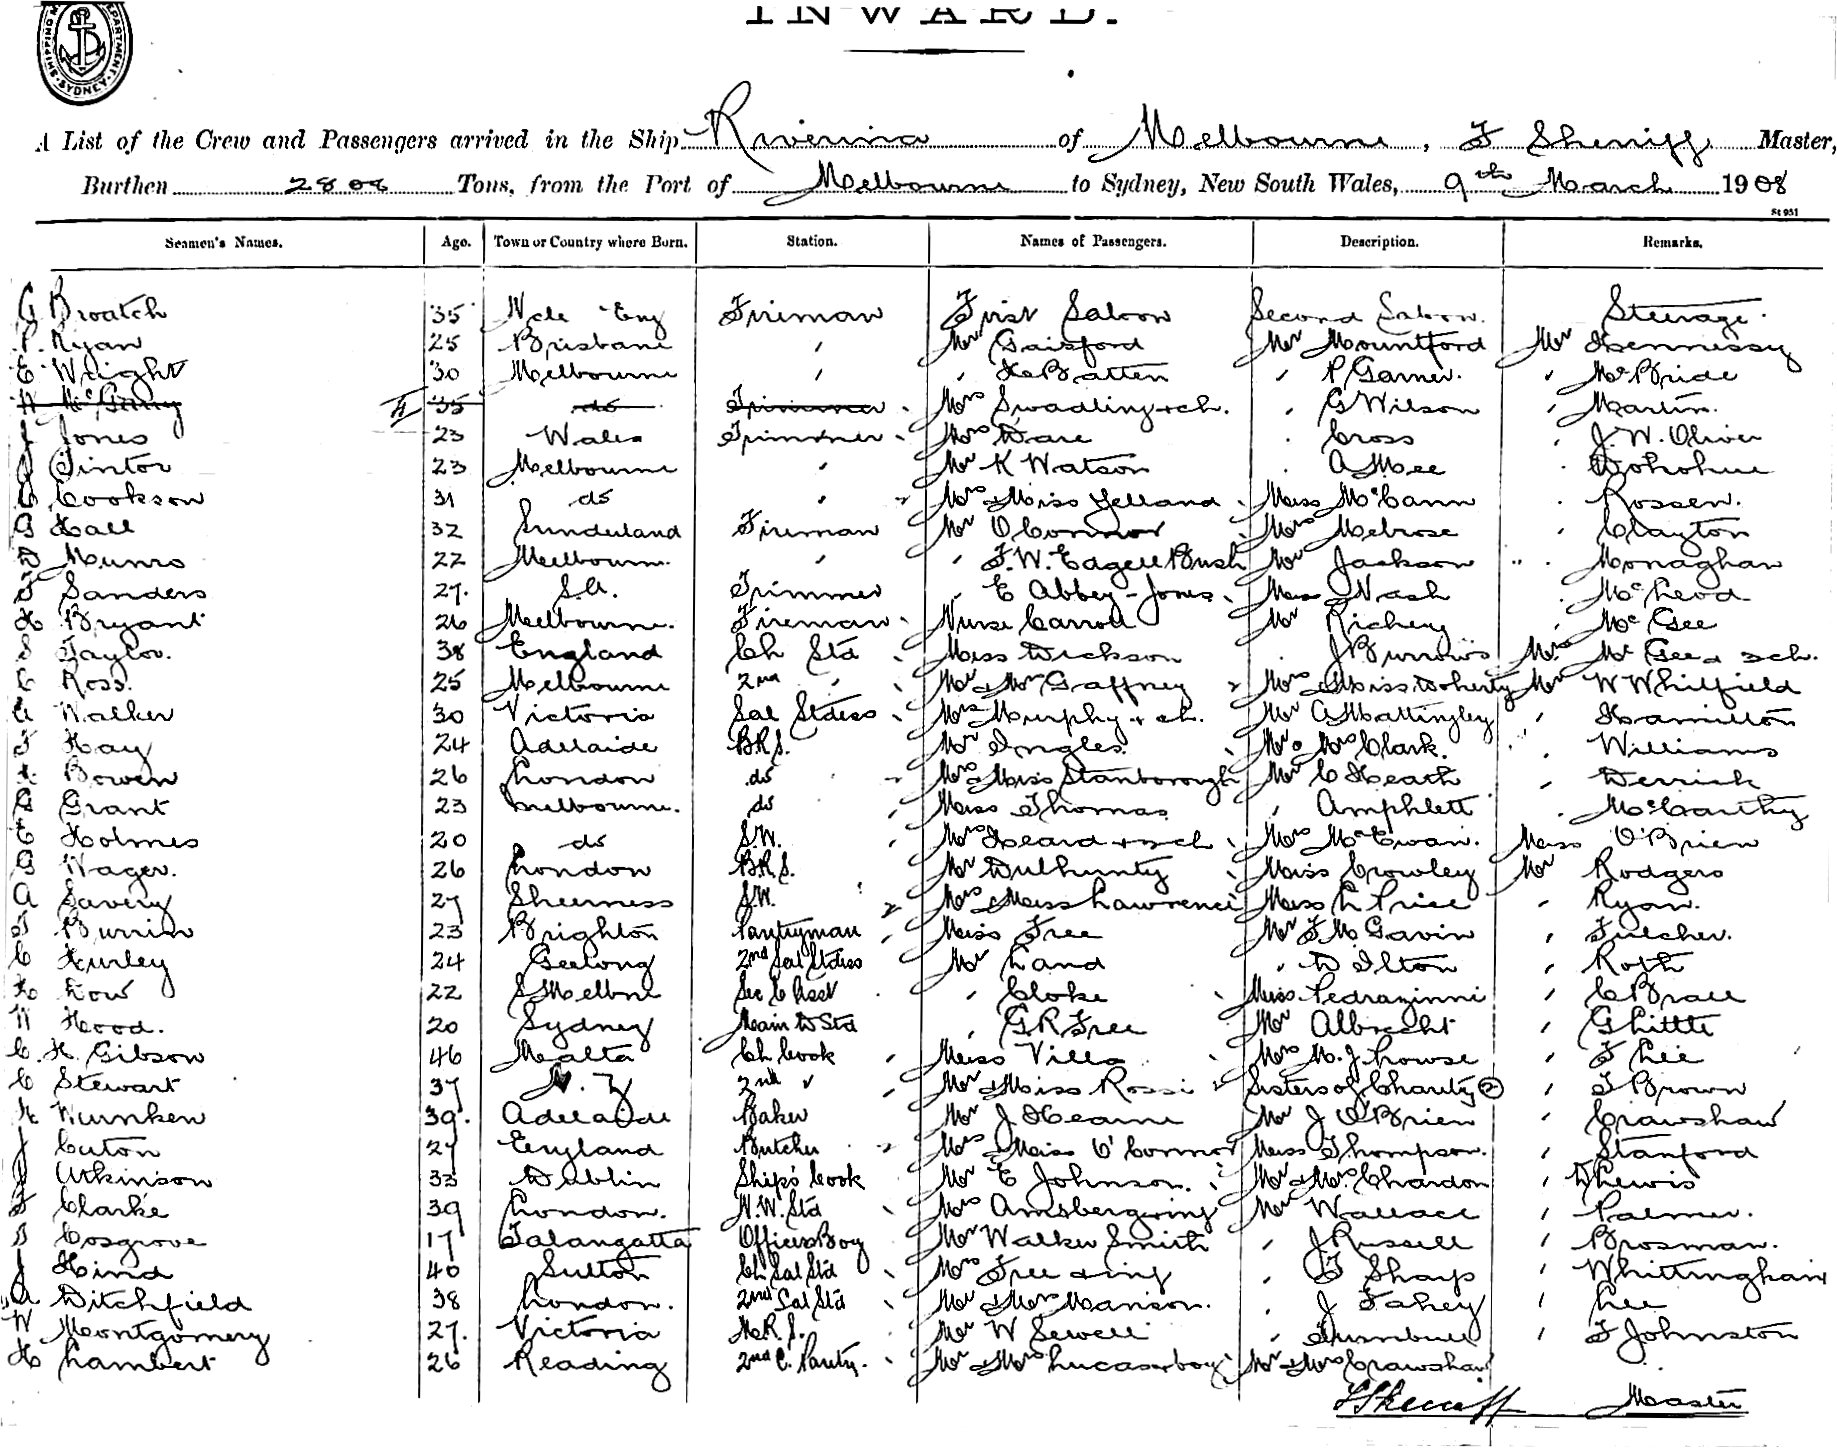 INWARD.
SHIPPING DEPARTMENT. SYDNEY
A List of the Crew and Passengers arrived in the Ship Riverina of Melbourne, F Sherriff Master,
Burthen 2808 Tons, from the Port of Melbourne to Sydney, New South Wales, 9th March 1908
St 951
Seamen's Names. Age. Town or Country where Born. Station. Names of Passengers. Description. Remarks.
G Broatch 35 Ncle Eng Fireman First Saloon Second Saloon. Steerage.
P. Ryan 25 Brisbane " Mr Gaisford Mr Mountford Mr Hennessy
E Wright 30 Melbourne " " H Batten " P Garner. " McBride
35 do Trimmer Mrs Swadling & ch. " G Wilson " Martin.
J Jones 23 Wales Trimmer Mrs Dare " Cross " J. W. Oliver
J Pintor 23 Melbourne " Mr K Watson " A Mee " Donohue
C Cookson 31 do " 2 Mrs & Miss Yelland Miss McCann " Rossen.
G Hall 32 Sunderland Fireman Mr O'Connor Mrs Melrose " Clayton
D Munro 22 Melbourne " " F. W. Edgell Bush Mr Jackson " Monaghan
F Sanders 27. S.A. Trimmer " E Abbey-Jones Miss Nash " McLeod
H Bryant 26 Melbourne. Fireman Nurse Carroll Mr Richey " McGee
S Taylor. 38 England Ch Std Miss Dickson " J Burrows Mrs McGee & 3ch.
C Ross. 25 Melbourne 2nd " Mr & Mrs Gaffney 2 Mrs & Miss Doherty Mr W Whitfield
A Walker 30 Victoria Sal Stdess Mrs Murphy & ch. Mr A Mattingley " Hamilton
F Hay 24 Adelaide B.R.S. Mr Ingles. Mr & Mrs Clark. " Williams
Bowen 26 London do 2 Mrs & Miss Stanborough Mr C Heath " Derrick
G Grant 23 Melbourne. do Miss Thomas " Amphlett " McCarthy
C Holmes 20 do S.W. Mrs Heard & 3ch Mrs McEwan. Miss O'Brien
G Wager. 26 London B.R.S. Mr Dulhunty Miss Crowley Mr Rodgers
A Savery 27 Sheerness S.W. 2 Mrs & Miss Lawrence Miss L Price " Ryan.
F Burrin 23 Brighton Pantryman Miss Free Mr F McGavin " Fulcher.
C Hurley 24 Geelong 2nd Sal Stdess Mr Land " D Ilton " Roth
H Low 22 S Melbne Sec C Asst " Cloke Miss Pedrazinni " C Brall
N Hood. 20 Sydney Main D Std " G R Free Mr Albrecht " G Little
C. H. Gibson 46 Malta Ch Cook Miss Villa Mrs M. J. Howse " F Lee
C Stewart 37 N. Z 2nd " Mr & Miss Rossi 2 Sisters of Charity (2) " T Brown
H Wumken 39. Adelaide Baker Mr J Hearne Mr J O'Brien " Crawshaw
J Caton 27 England Butcher 2 Mrs & Miss O'Connor Miss Thompson. " Stanford
J Atkinson 33 Dublin Ship's Cook Mr E Johnson. Mr & Mrs Chardon " D Lewis
F Clarke 39 London. N.W. Std Mrs Amsberg & inf Mr Wallace " Palmer.
S Cosgrove 17 Talangatta Officers Boy Mr Walker Smith " J Russell " Brosman.
J Hind 40 Sutton Ch Sal Std Mrs Free & inf " F Sharp " Whittingham
A Ditchfield 38 London. 2nd Sal Std Mr & Mrs Manson. " J Fahey " Lee
W Montgomery 27. Victoria M.R.S. Mr W Sewell " Trumbull " F Johnston
H Lambert 26 Reading 2nd C. Pantry. Mr & Mrs Lucas & boy Mr & Mrs Crawshaw
F Sherriff Master